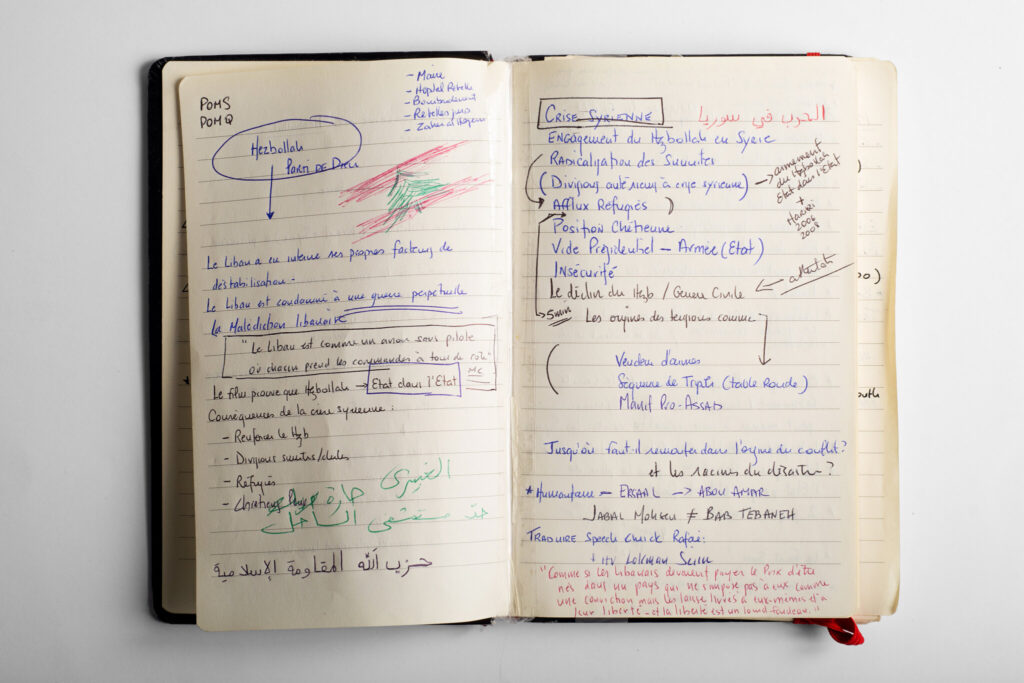 POMS
POMQ
- Maire
- Hôpital Rebelle
- Bombardement
- Rebelles
Hezbollah
PARTI DE DIEU
Le Liban a en interne ses propres facteurs de
déstabilisation.
Le Liban est condamné à une guerre perpétuelle
la Malédiction libanaise
"Le Liban est comme un avion sans pilote
où chacun prend les commandes à tour de rôle"
MC
Le film prouve que Hezbollah → Etat dans l'Etat
Conséquences de la crise syrienne :
- Renforcer le Hzb
- Divisions sunnites/chiites
- Réfugiés
- Chrétiens
الغبيري
حارة
حد مستشفى الساحل
حزب الله المقاومة الإسلامية
CRISE SYRIENNE
الحرب في سوريا
ENGAGEMENT du Hezbollah en Syrie
Radicalisation des Sunnites
(Divisions antérieures à crise syrienne) → armement
du Hezbollah
Etat dans l'Etat
+
Hariri
2006
2008
Afflux Réfugiés )
Position Chrétienne
Vide Présidentiel - Armée (Etat)
Insécurité
attentats
Le déclin du Hezb / Guerre Civile
5 min
Les origines des tensions comme
Vendeur d'armes
Séquence de Tripoli (table Ronde)
Manif Pro-ASSAD
Jusqu'où faut-il remonter dans l'origine du conflit ?
et les racines du désastre ?
* Humanitaire - ERSAAL → ABOU AMAR
JABAL Mohsen ≠ BAB TEBANEH
TRADUIRE Speech Cheick Rafaï :
+ itv Lokman Slim
"Comme si les libanais devaient payer le Prix d'être
nés dans un pays qui ne s'impose pas à eux comme
une conviction mais les laisse livrés à eux-mêmes et à
leur liberté - et la liberté est un lourd fardeau."